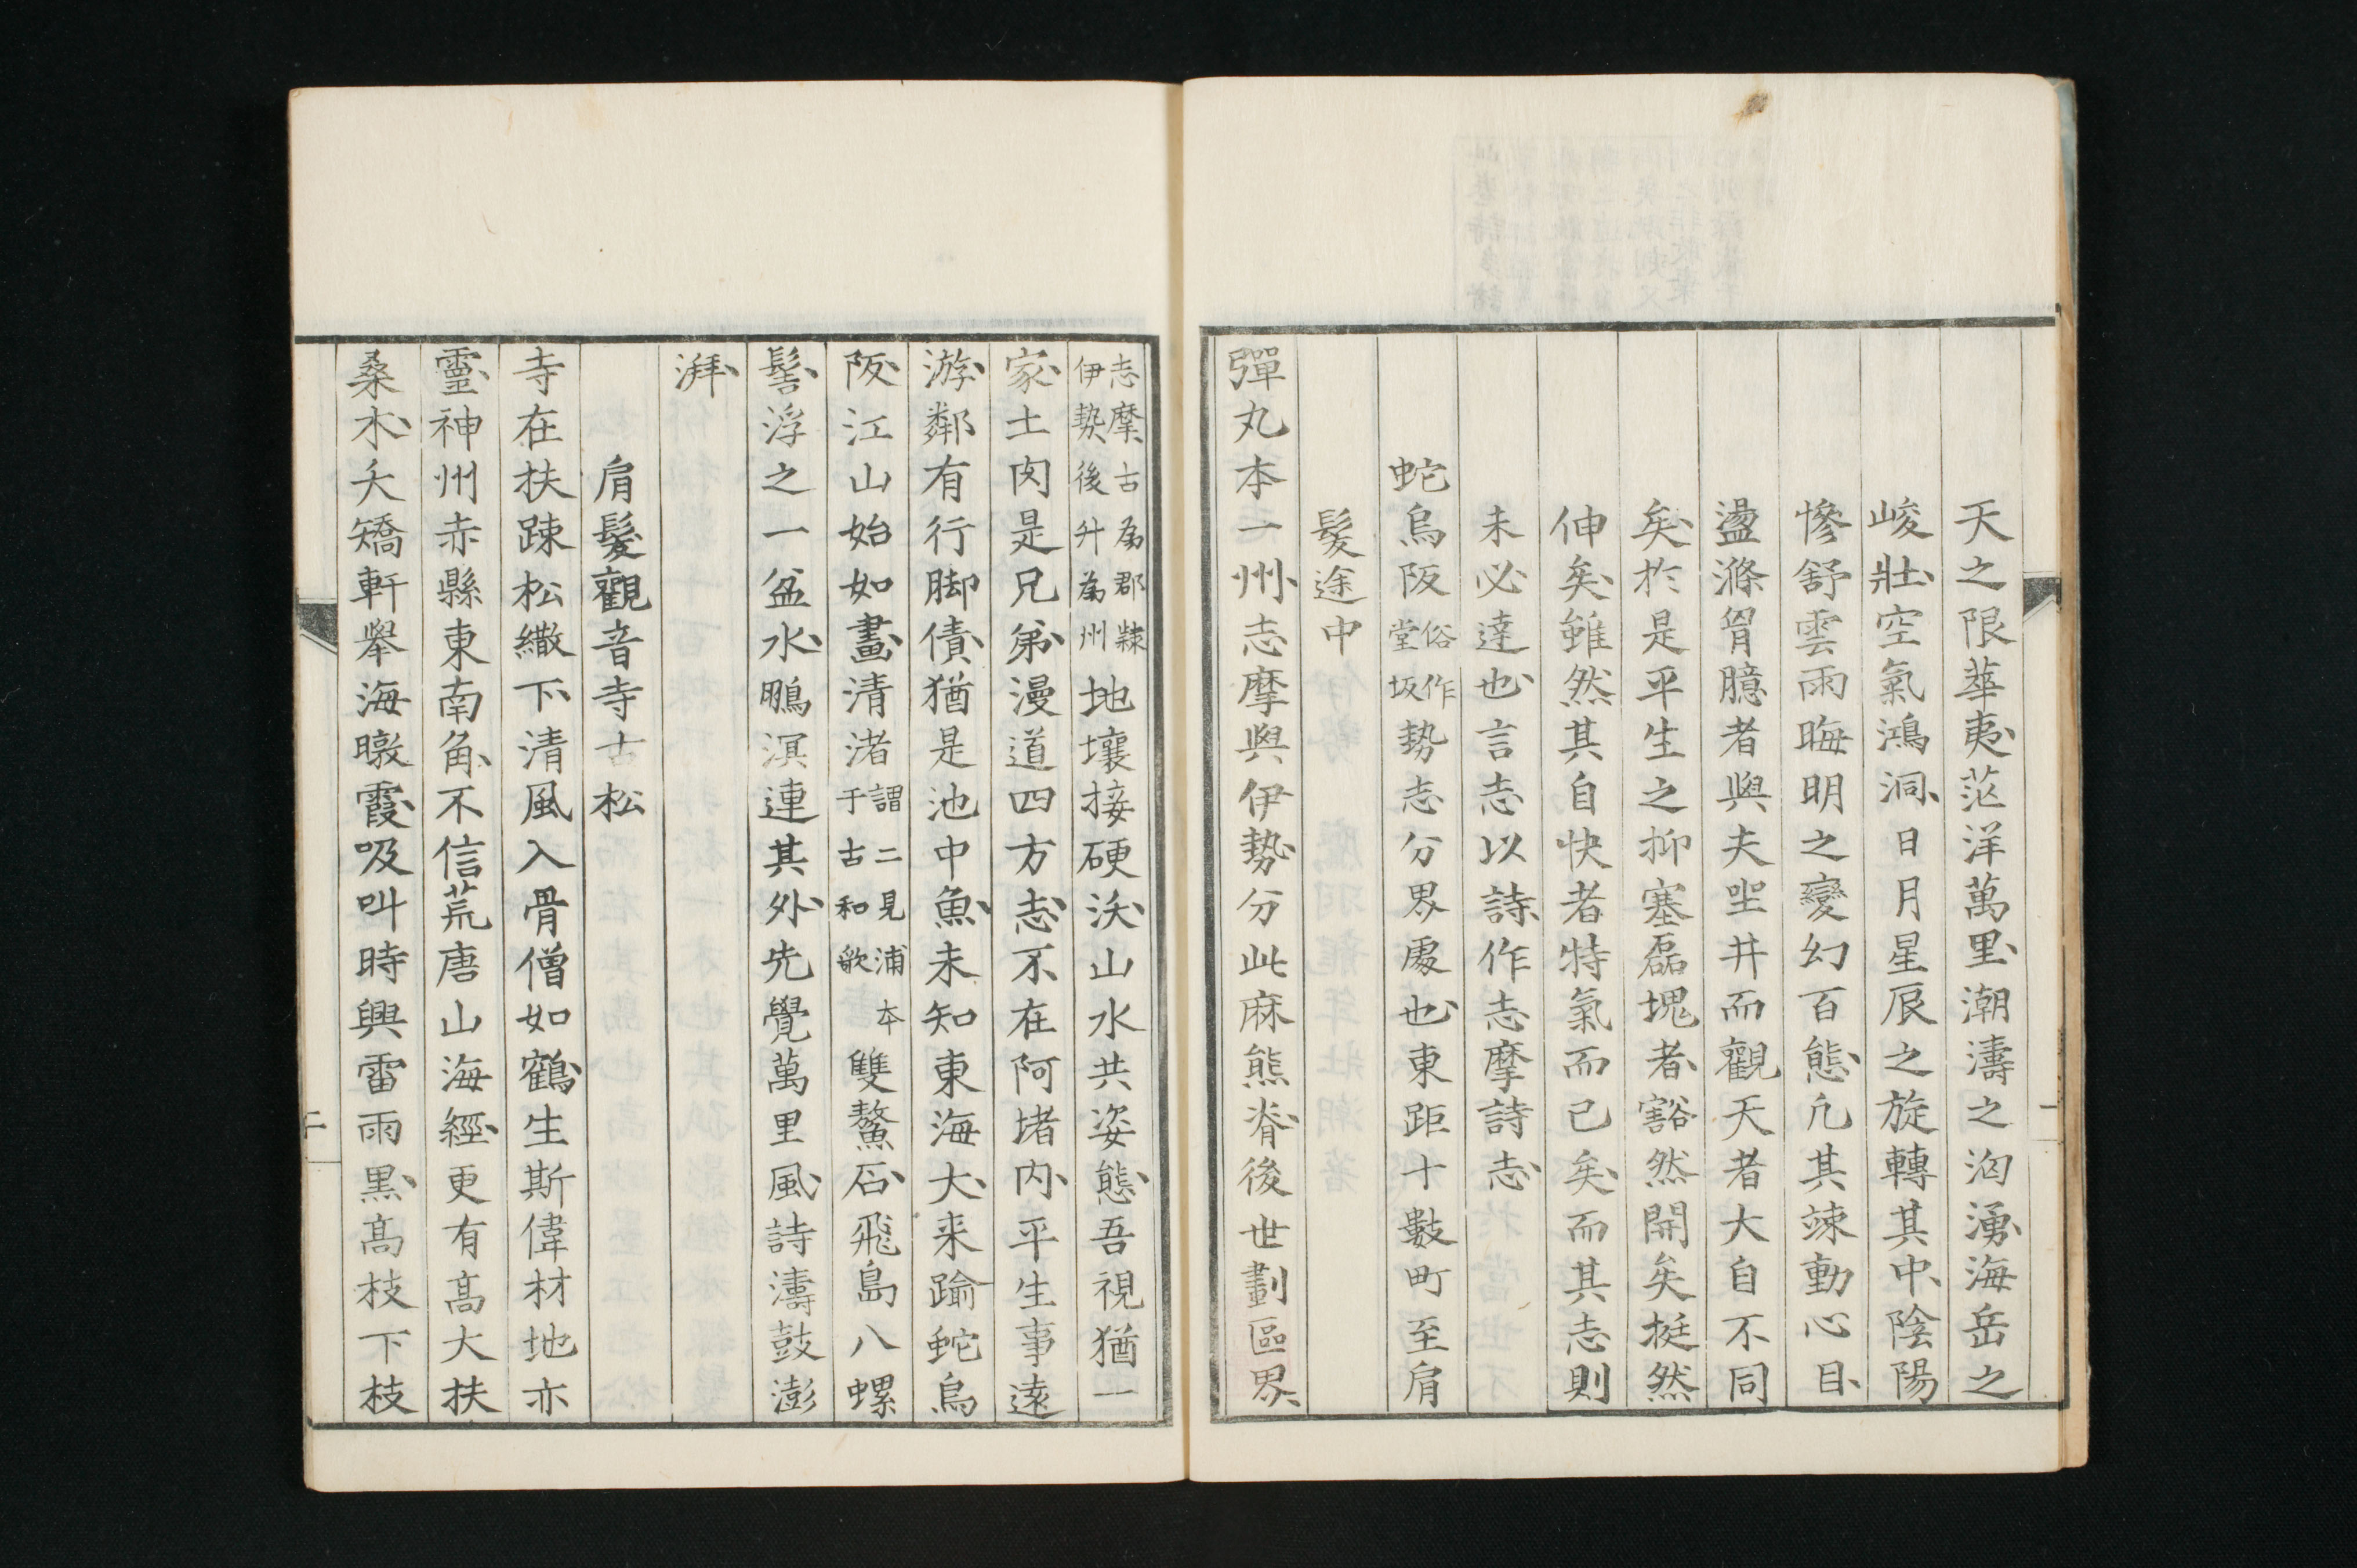 天之限華夷茫洋萬里潮濤之洶湧海岳之
峻壯空氣鴻洞日月星辰之旋轉其中陰陽
慘舒雲雨晦明之變幻百態凢其竦動心目
盪滌胷臆者與夫坐井而觀天者大自不同
矣於是平生之抑塞磊塊者豁然開矣挺然
伸矣雖然其自快者特氣而已矣而其志則
未必達也言志以詩作志摩詩志
蛇烏阪俗作堂坂勢志分界處也東距十數町至肩
髪途中
彈丸本一州志摩與伊勢分此麻熊脊後世劃區界
志摩古為郡隸伊勢後升為州地壤接硬沃山水共姿態吾視猶一
家土肉是兄弟漫道四方志不在阿堵内平生事遠
游鄰有行脚債猶是池中魚未知東海大来踰蛇烏
阪江山始如畫清渚謂二見浦本于古和歌雙鰲石飛島八螺
髻浮之一盆水鵬溟連其外先覺萬里風詩濤鼓澎
湃
肩髪觀音寺古松
寺在扶踈松繖下清風入骨僧如鶴生斯偉材地亦
靈神州赤縣東南角不信荒唐山海經更有髙大扶
桑木夭矯軒舉海暾霞吸呌時興雷雨黒髙枝下枝